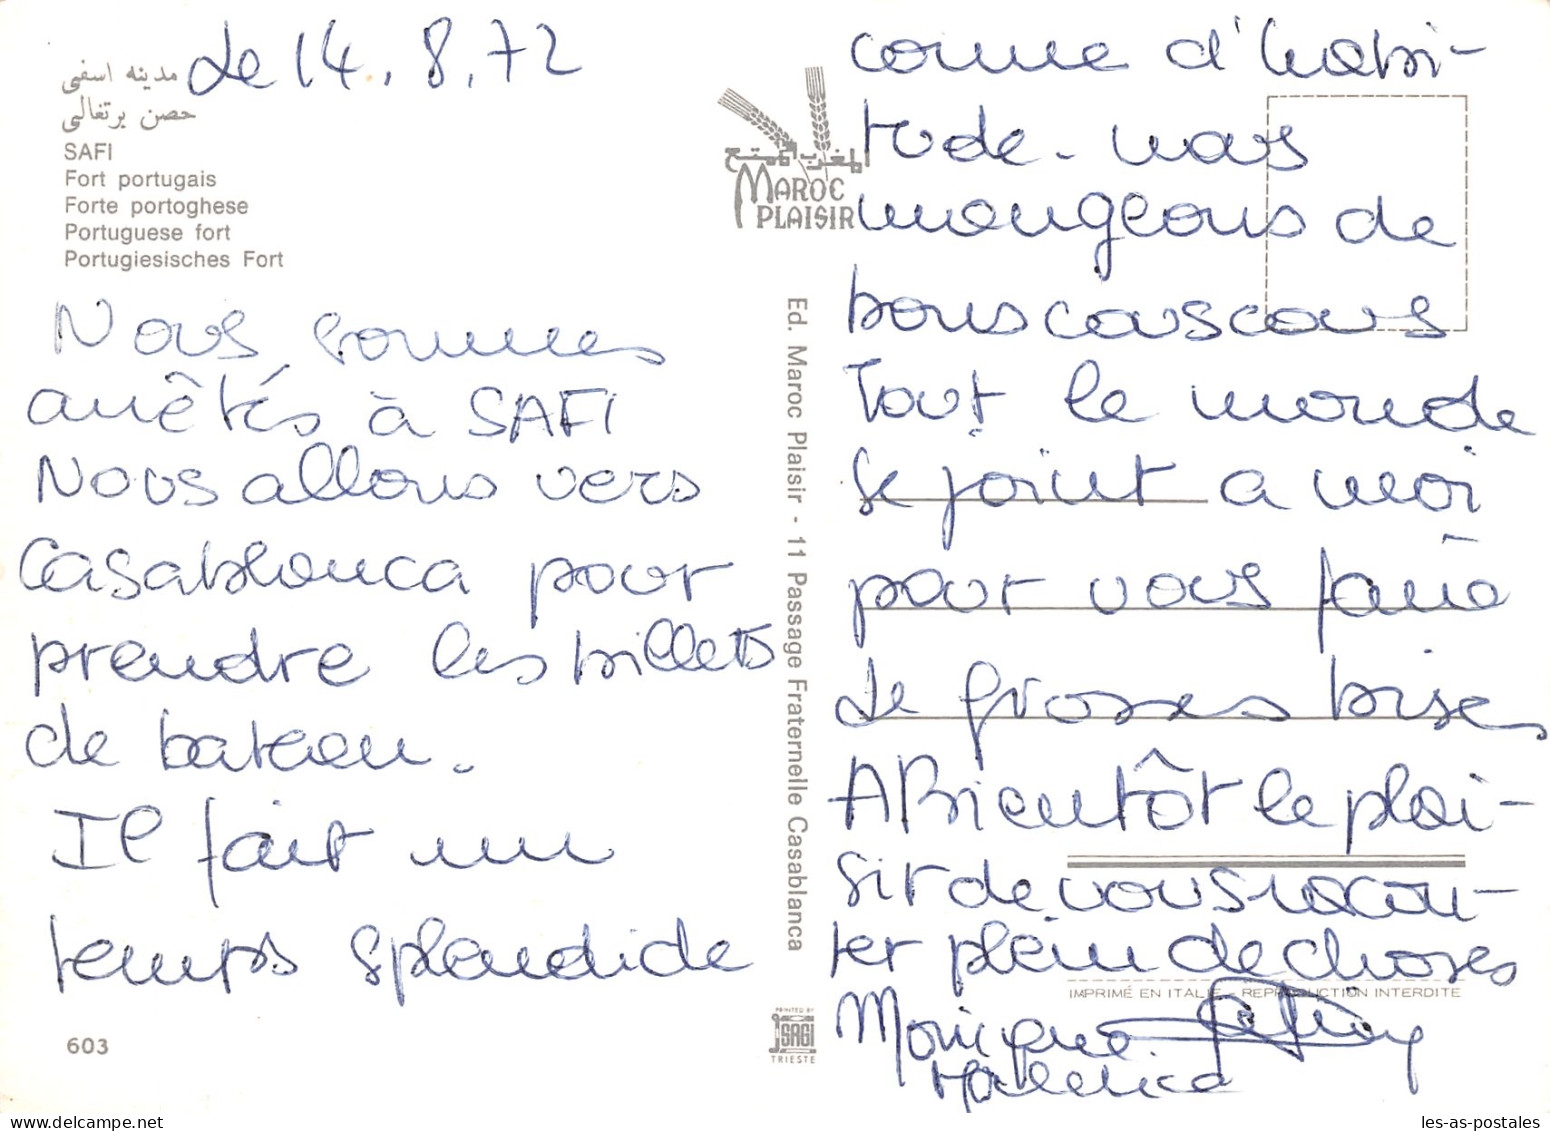 Le 14.8.72
مدينه اسفي
حصن برتغالي
SAFI
Fort portugais
Forte portoghese
Portuguese fort
Portugiesisches Fort
Nous sommes
arrêtés à SAFI
Nous allons vers
Casablanca pour
prendre les billets
de bateau.
Il fait un
temps splendide
603
المغرب الممتع
MAROC
PLAISIR
Ed. Maroc Plaisir - 11 Passage Fraternelle Casablanca
PRINTED BY
SAGI
TRIESTE
comme d'habi-
tude. nous
mangeons de
bons couscous
Tout le monde
se joint a moi
pour vous faire
de grosses bises
A Bientôt le plai-
sir de vous racon-
ter plein de choses
IMPRIMÉ EN ITALIE - REPRODUCTION INTERDITE
Monique
les-as-postales